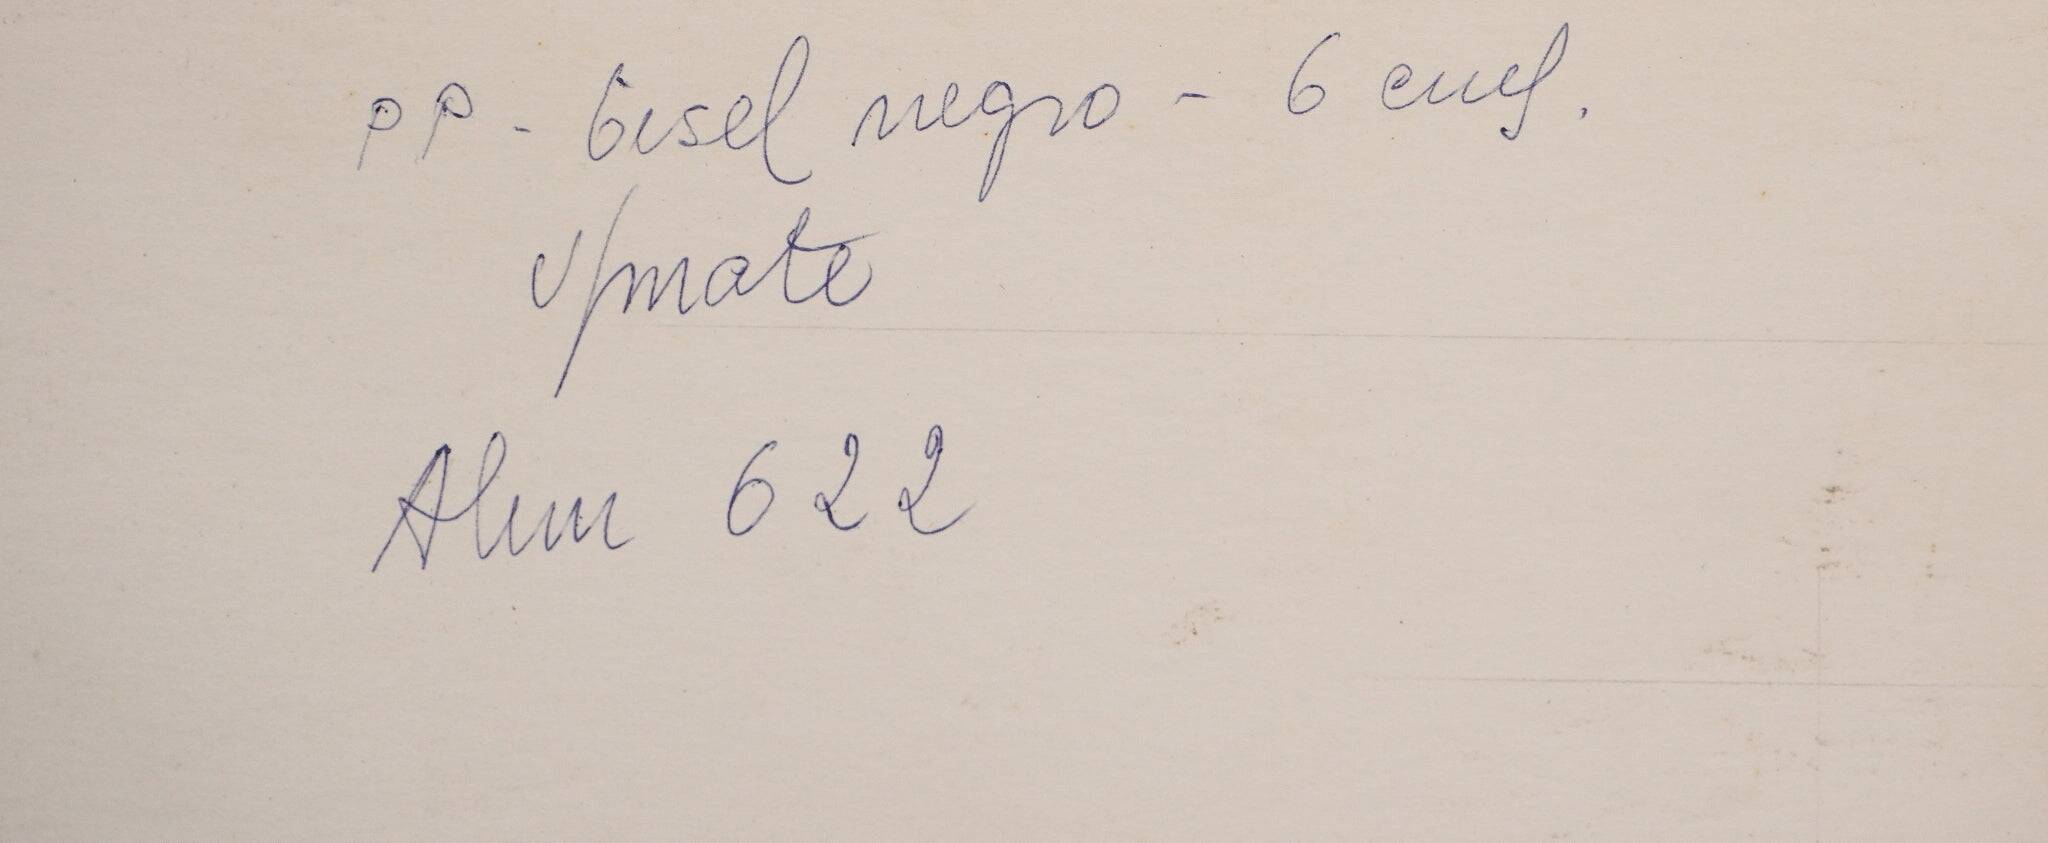 PP - bisel negro - 6 cms.
v/mate
Alum 622